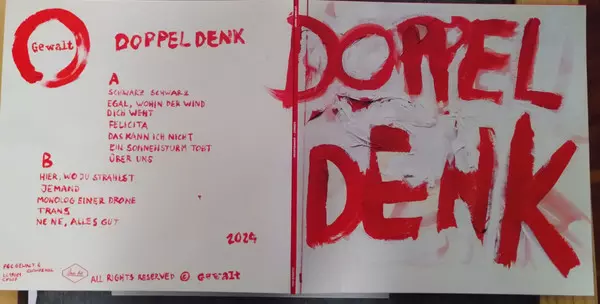 Gewalt
DOPPELDENK
A
SCHWARZ SCHWARZ
EGAL, WOHIN DER WIND
DICH WEHT
FELICITA
DAS KANN ICH NICHT
EIN SONNENSTURM TOBT
ÜBER UNS
B
HIER, WO DU STRAHLST
JEMAND
MONOLOG EINER DROHNE
TRANS
NE NE, ALLES GUT
2024
ALL RIGHTS RESERVED © Gewalt
DOPPEL
DENK